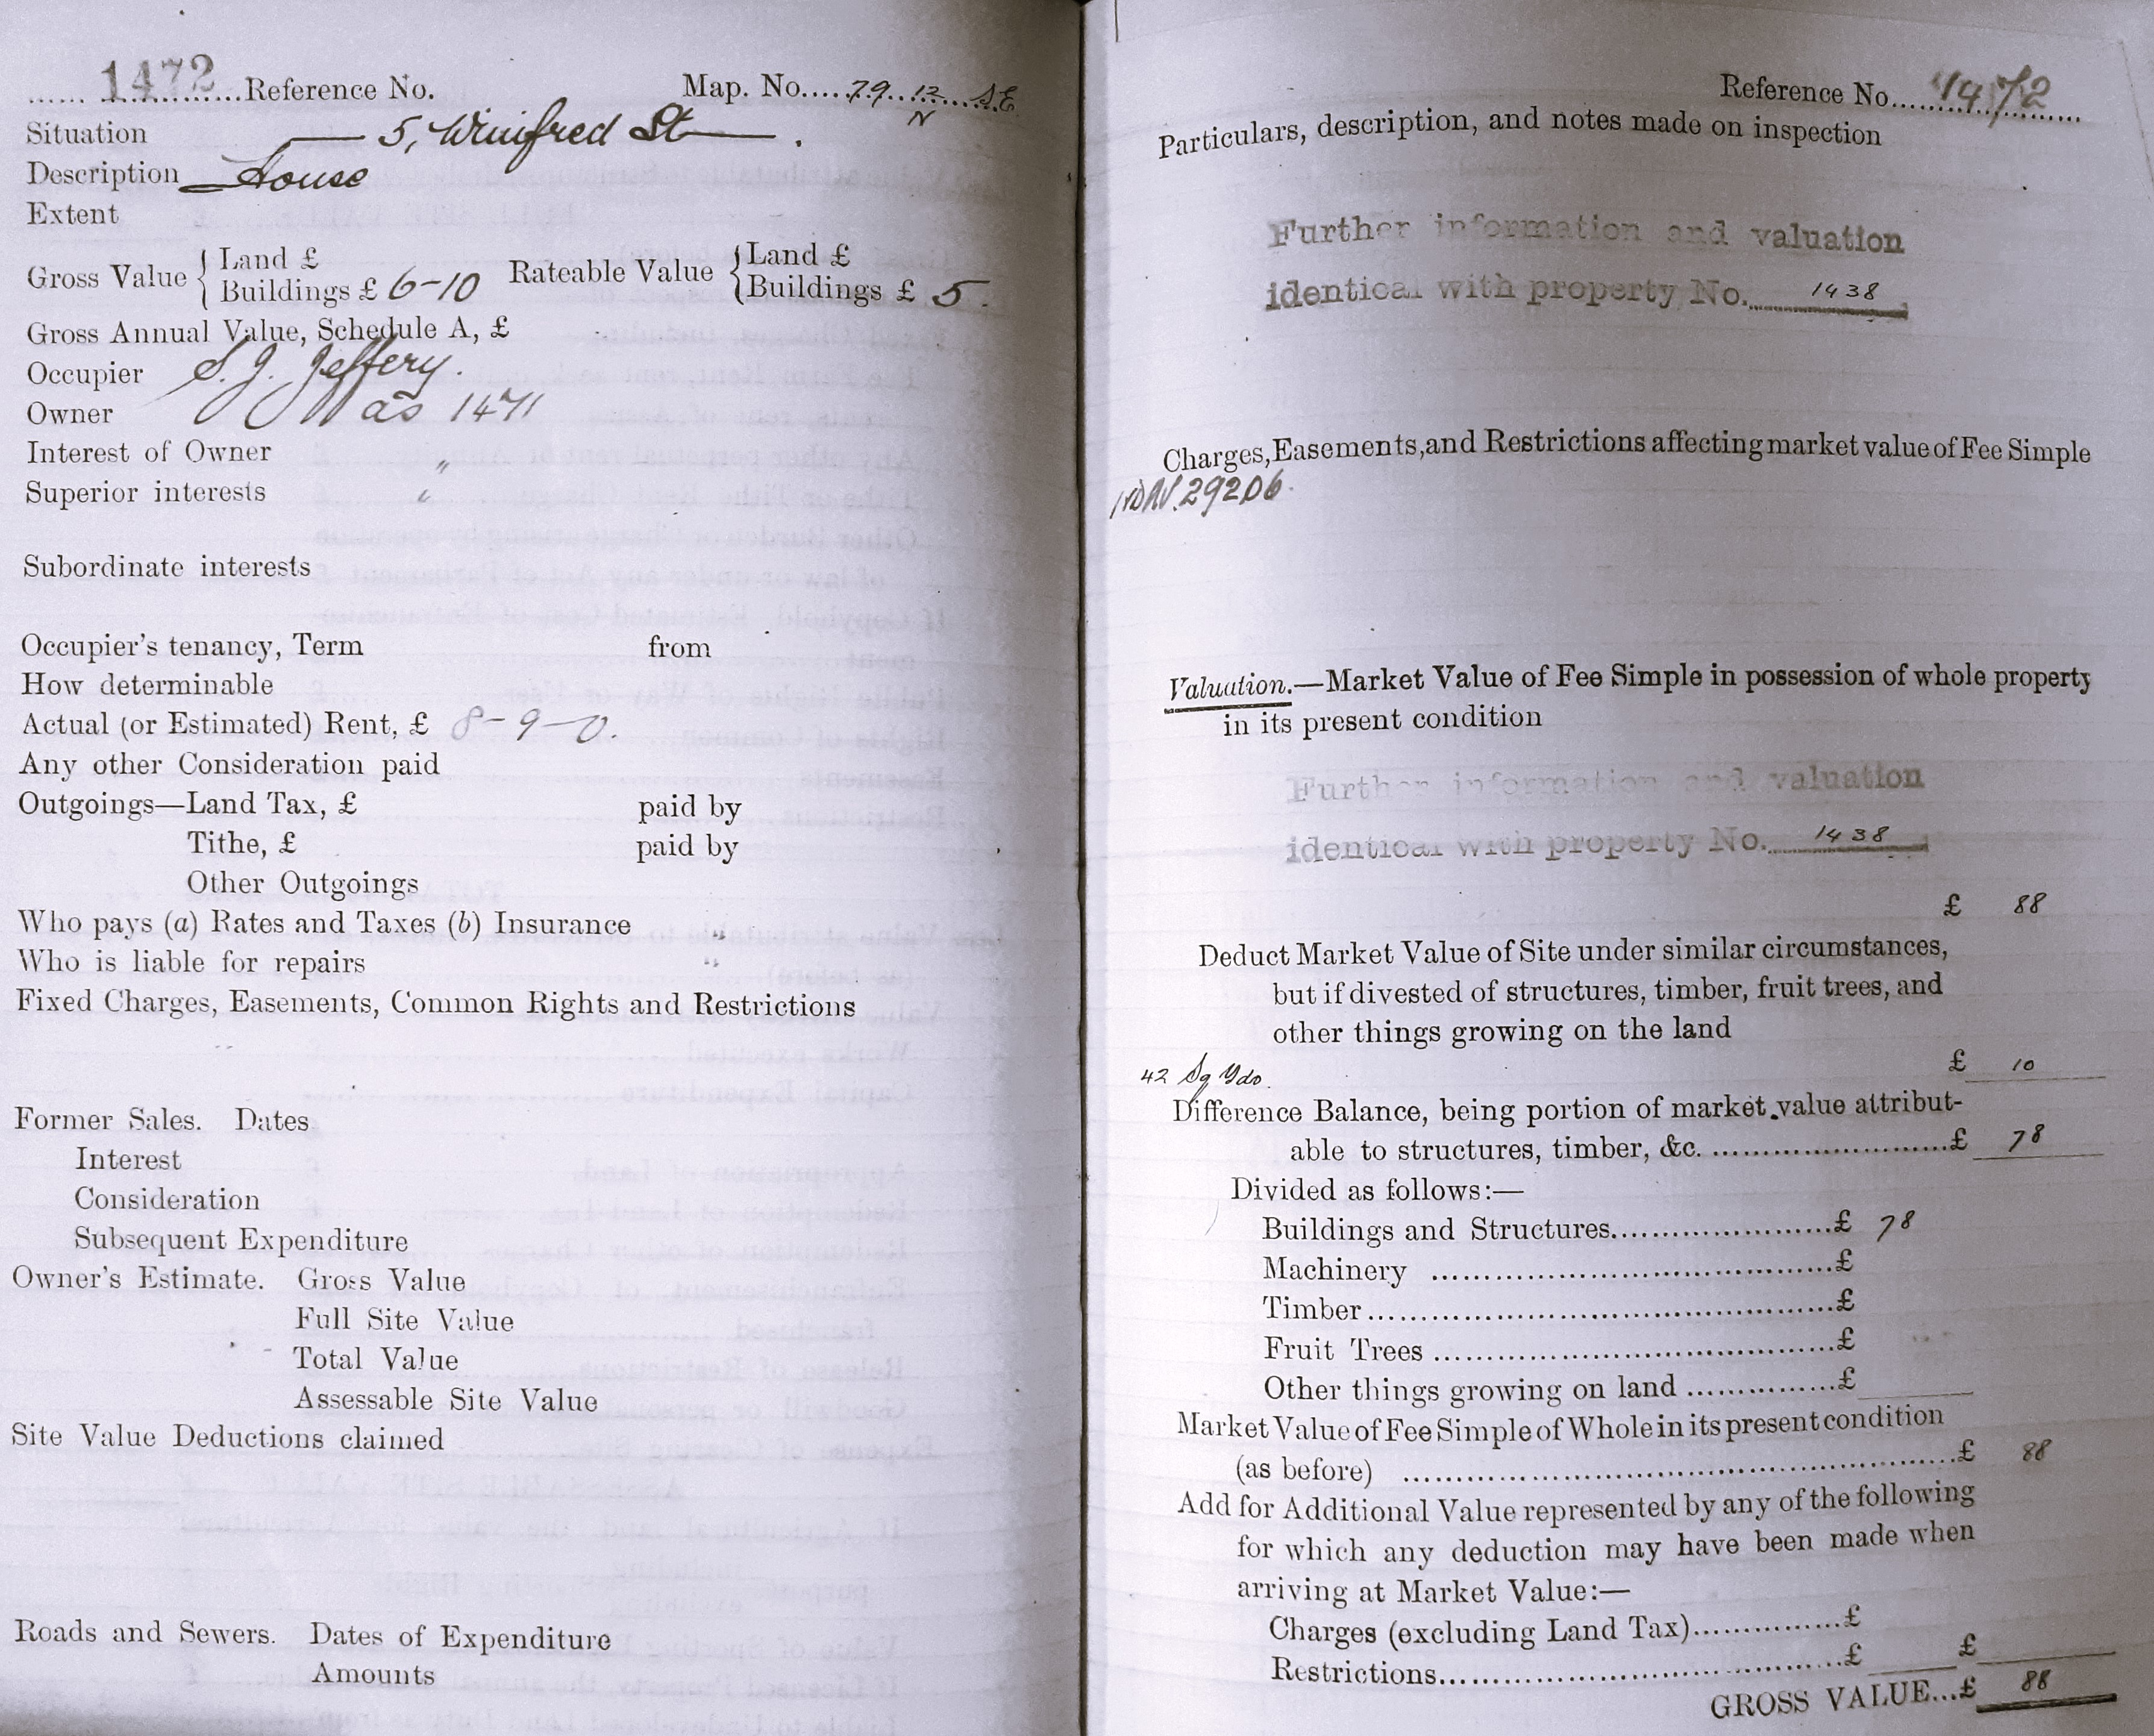 1472 Reference No. Map. No. 79 12 S.E.
N
Situation 5, Winifred St.
Description House
Extent
Gross Value { Land £ Rateable Value { Land £
Buildings £ 6-10 Buildings £ 5.
Gross Annual Value, Schedule A, £
Occupier S. J. Jeffery.
Owner as 1471
Interest of Owner "
Superior interests "
Subordinate interests
Occupier's tenancy, Term from
How determinable
Actual (or Estimated) Rent, £ 8-9-0.
Any other Consideration paid
Outgoings—Land Tax, £ paid by
Tithe, £ paid by
Other Outgoings
Who pays (a) Rates and Taxes (b) Insurance "
Who is liable for repairs "
Fixed Charges, Easements, Common Rights and Restrictions
Former Sales. Dates
Interest
Consideration
Subsequent Expenditure
Owner's Estimate. Gross Value
Full Site Value
Total Value
Assessable Site Value
Site Value Deductions claimed
Roads and Sewers. Dates of Expenditure
Amounts
Reference No. 1472
Particulars, description, and notes made on inspection
Further information and valuation
identical with property No. 1438
Charges, Easements, and Restrictions affecting market value of Fee Simple
29206.
Valuation.—Market Value of Fee Simple in possession of whole property
in its present condition
Further information and valuation
identical with property No. 1438
£ 88
Deduct Market Value of Site under similar circumstances,
but if divested of structures, timber, fruit trees, and
other things growing on the land
42 Sq Yds. £ 10
Difference Balance, being portion of market value attribut-
able to structures, timber, &c. £ 78
Divided as follows:—
Buildings and Structures £ 78
Machinery £
Timber £
Fruit Trees £
Other things growing on land £
Market Value of Fee Simple of Whole in its present condition
(as before) £ 88
Add for Additional Value represented by any of the following
for which any deduction may have been made when
arriving at Market Value:—
Charges (excluding Land Tax) £
Restrictions £ £
GROSS VALUE...£ 88